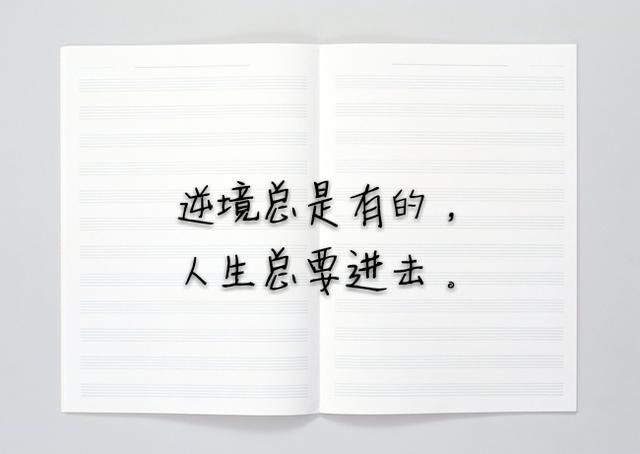 逆境总是有的，
人生总要进去。